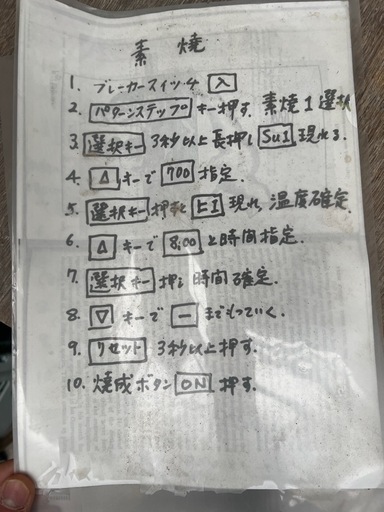 素焼
1. ブレーカースイッチ 入
2. パターンステップ キー押す. 素焼1選択
3. 選択キー 3秒以上長押し SU1 現れる.
4. △ キーで 700 指定.
5. 選択キー 押すと 現れ, 温度確定.
6. △ キーで 8:00 と時間指定.
7. 選択キー 押し 時間確定.
8. ▽ キーで ー までもっていく.
9. リセット 3秒以上押す.
10. 焼成ボタン ON 押す.